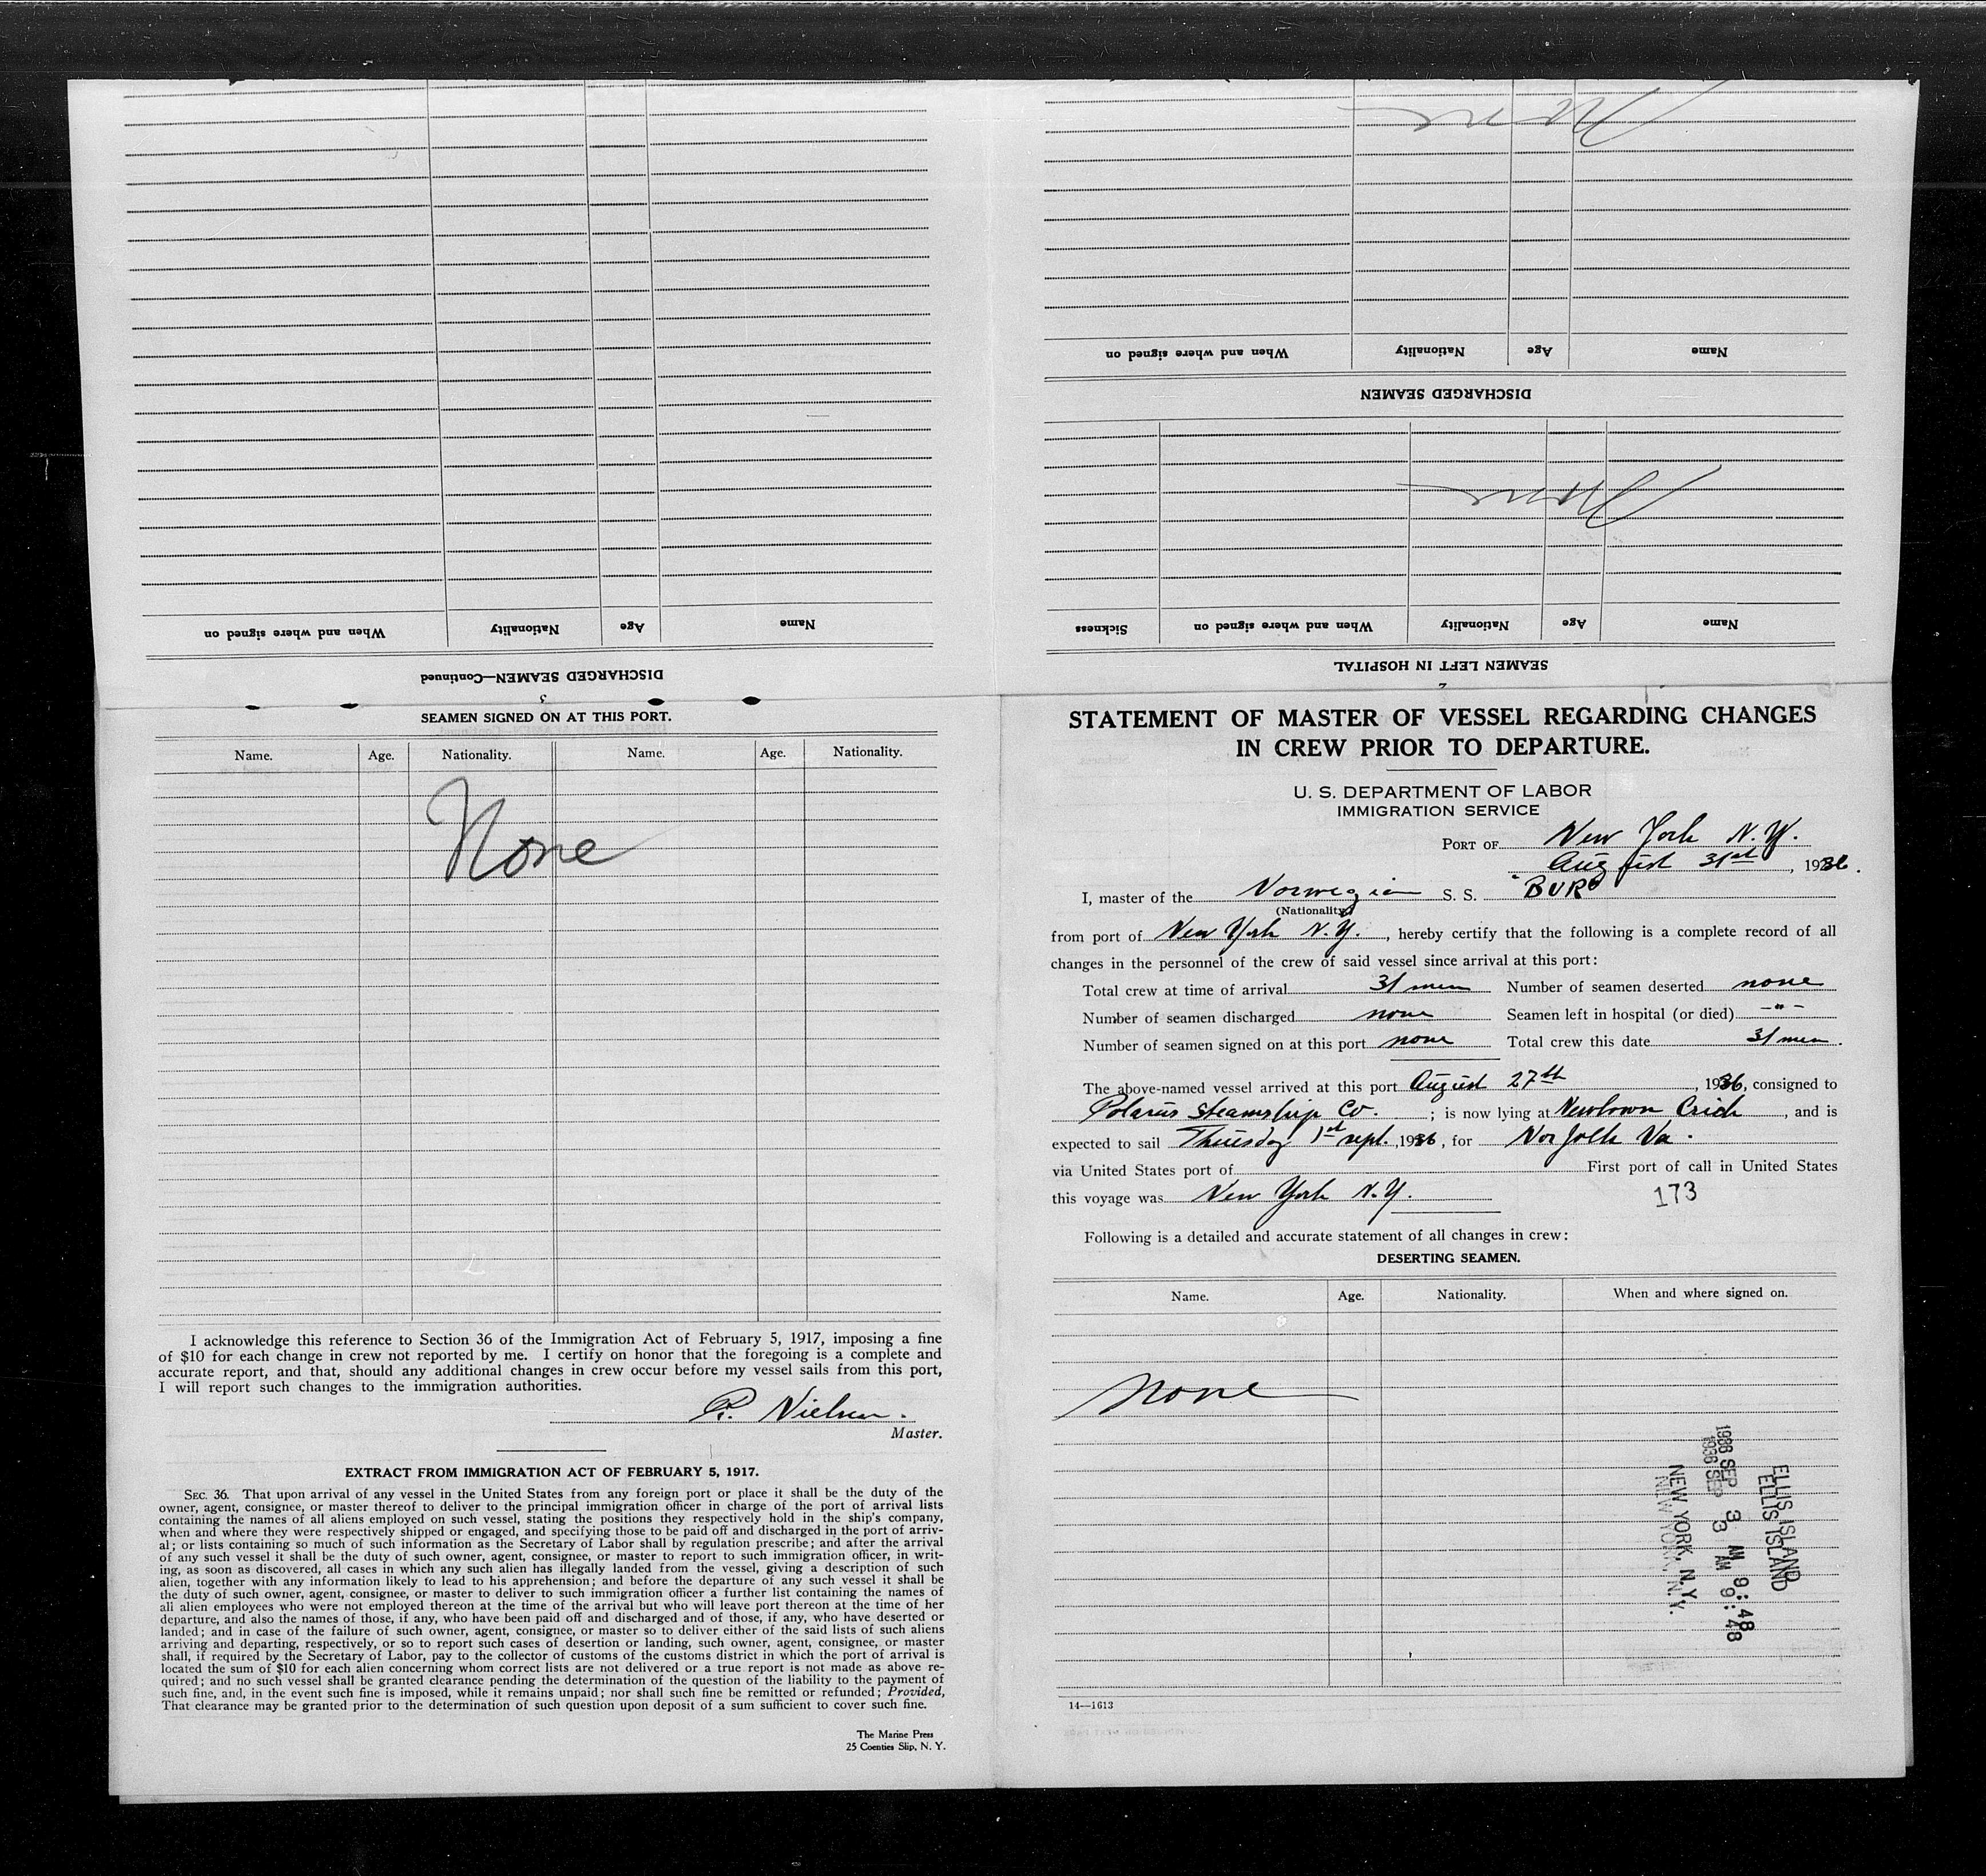 When and where signed on
Nationality
Age
Name
DISCHARGED SEAMEN—Continued
3
None
When and where signed on
Nationality
Age
Name
DISCHARGED SEAMEN
None
Sickness
When and where signed on
Nationality
Age
Name
SEAMEN LEFT IN HOSPITAL
2
SEAMEN SIGNED ON AT THIS PORT.
Name. Age. Nationality. Name. Age. Nationality.
None
I acknowledge this reference to Section 36 of the Immigration Act of February 5, 1917, imposing a fine
of $10 for each change in crew not reported by me. I certify on honor that the foregoing is a complete and
accurate report, and that, should any additional changes in crew occur before my vessel sails from this port,
I will report such changes to the immigration authorities.
P. Nielsen.
Master.
EXTRACT FROM IMMIGRATION ACT OF FEBRUARY 5, 1917.
SEC. 36. That upon arrival of any vessel in the United States from any foreign port or place it shall be the duty of the
owner, agent, consignee, or master thereof to deliver to the principal immigration officer in charge of the port of arrival lists
containing the names of all aliens employed on such vessel, stating the positions they respectively hold in the ship's company,
when and where they were respectively shipped or engaged, and specifying those to be paid off and discharged in the port of arriv-
al; or lists containing so much of such information as the Secretary of Labor shall by regulation prescribe; and after the arrival
of any such vessel it shall be the duty of such owner, agent, consignee, or master to report to such immigration officer, in writ-
ing, as soon as discovered, all cases in which any such alien has illegally landed from the vessel, giving a description of such
alien, together with any information likely to lead to his apprehension; and before the departure of any such vessel it shall be
the duty of such owner, agent, consignee, or master to deliver to such immigration officer a further list containing the names of
all alien employees who were not employed thereon at the time of the arrival but who will leave port thereon at the time of her
departure, and also the names of those, if any, who have been paid off and discharged and of those, if any, who have deserted or
landed; and in case of the failure of such owner, agent, consignee, or master so to deliver either of the said lists of such aliens
arriving and departing, respectively, or so to report such cases of desertion or landing, such owner, agent, consignee, or master
shall, if required by the Secretary of Labor, pay to the collector of customs of the customs district in which the port of arrival is
located the sum of $10 for each alien concerning whom correct lists are not delivered or a true report is not made as above re-
quired; and no such vessel shall be granted clearance pending the determination of the question of the liability to the payment of
such fine, and, in the event such fine is imposed, while it remains unpaid; nor shall such fine be remitted or refunded; Provided,
That clearance may be granted prior to the determination of such question upon deposit of a sum sufficient to cover such fine.
The Marine Press
25 Coenties Slip, N. Y.
STATEMENT OF MASTER OF VESSEL REGARDING CHANGES
IN CREW PRIOR TO DEPARTURE.
U. S. DEPARTMENT OF LABOR
IMMIGRATION SERVICE
PORT OF New York N.Y.
August 31st, 1936.
I, master of the Norwegian S. S. "BUR"
(Nationality)
from port of New York N.Y., hereby certify that the following is a complete record of all
changes in the personnel of the crew of said vessel since arrival at this port:
Total crew at time of arrival 31 men Number of seamen deserted none
Number of seamen discharged none Seamen left in hospital (or died) -"-
Number of seamen signed on at this port none Total crew this date 31 men.
The above-named vessel arrived at this port August 27th, 1936, consigned to
Polarus Steamship Co.; is now lying at Newtown Crick, and is
expected to sail Thursday 1st sept., 1936, for Norfolk Va.
via United States port of First port of call in United States
this voyage was New York N.Y.
173
Following is a detailed and accurate statement of all changes in crew:
DESERTING SEAMEN.
Name. Age. Nationality. When and where signed on.
None
ELLIS ISLAND
ELLIS ISLAND
1936 SEP 3 AM 9:48
1936 SEP 3 AM 9:48
NEW YORK, N.Y.
NEW YORK, N.Y.
14—1613